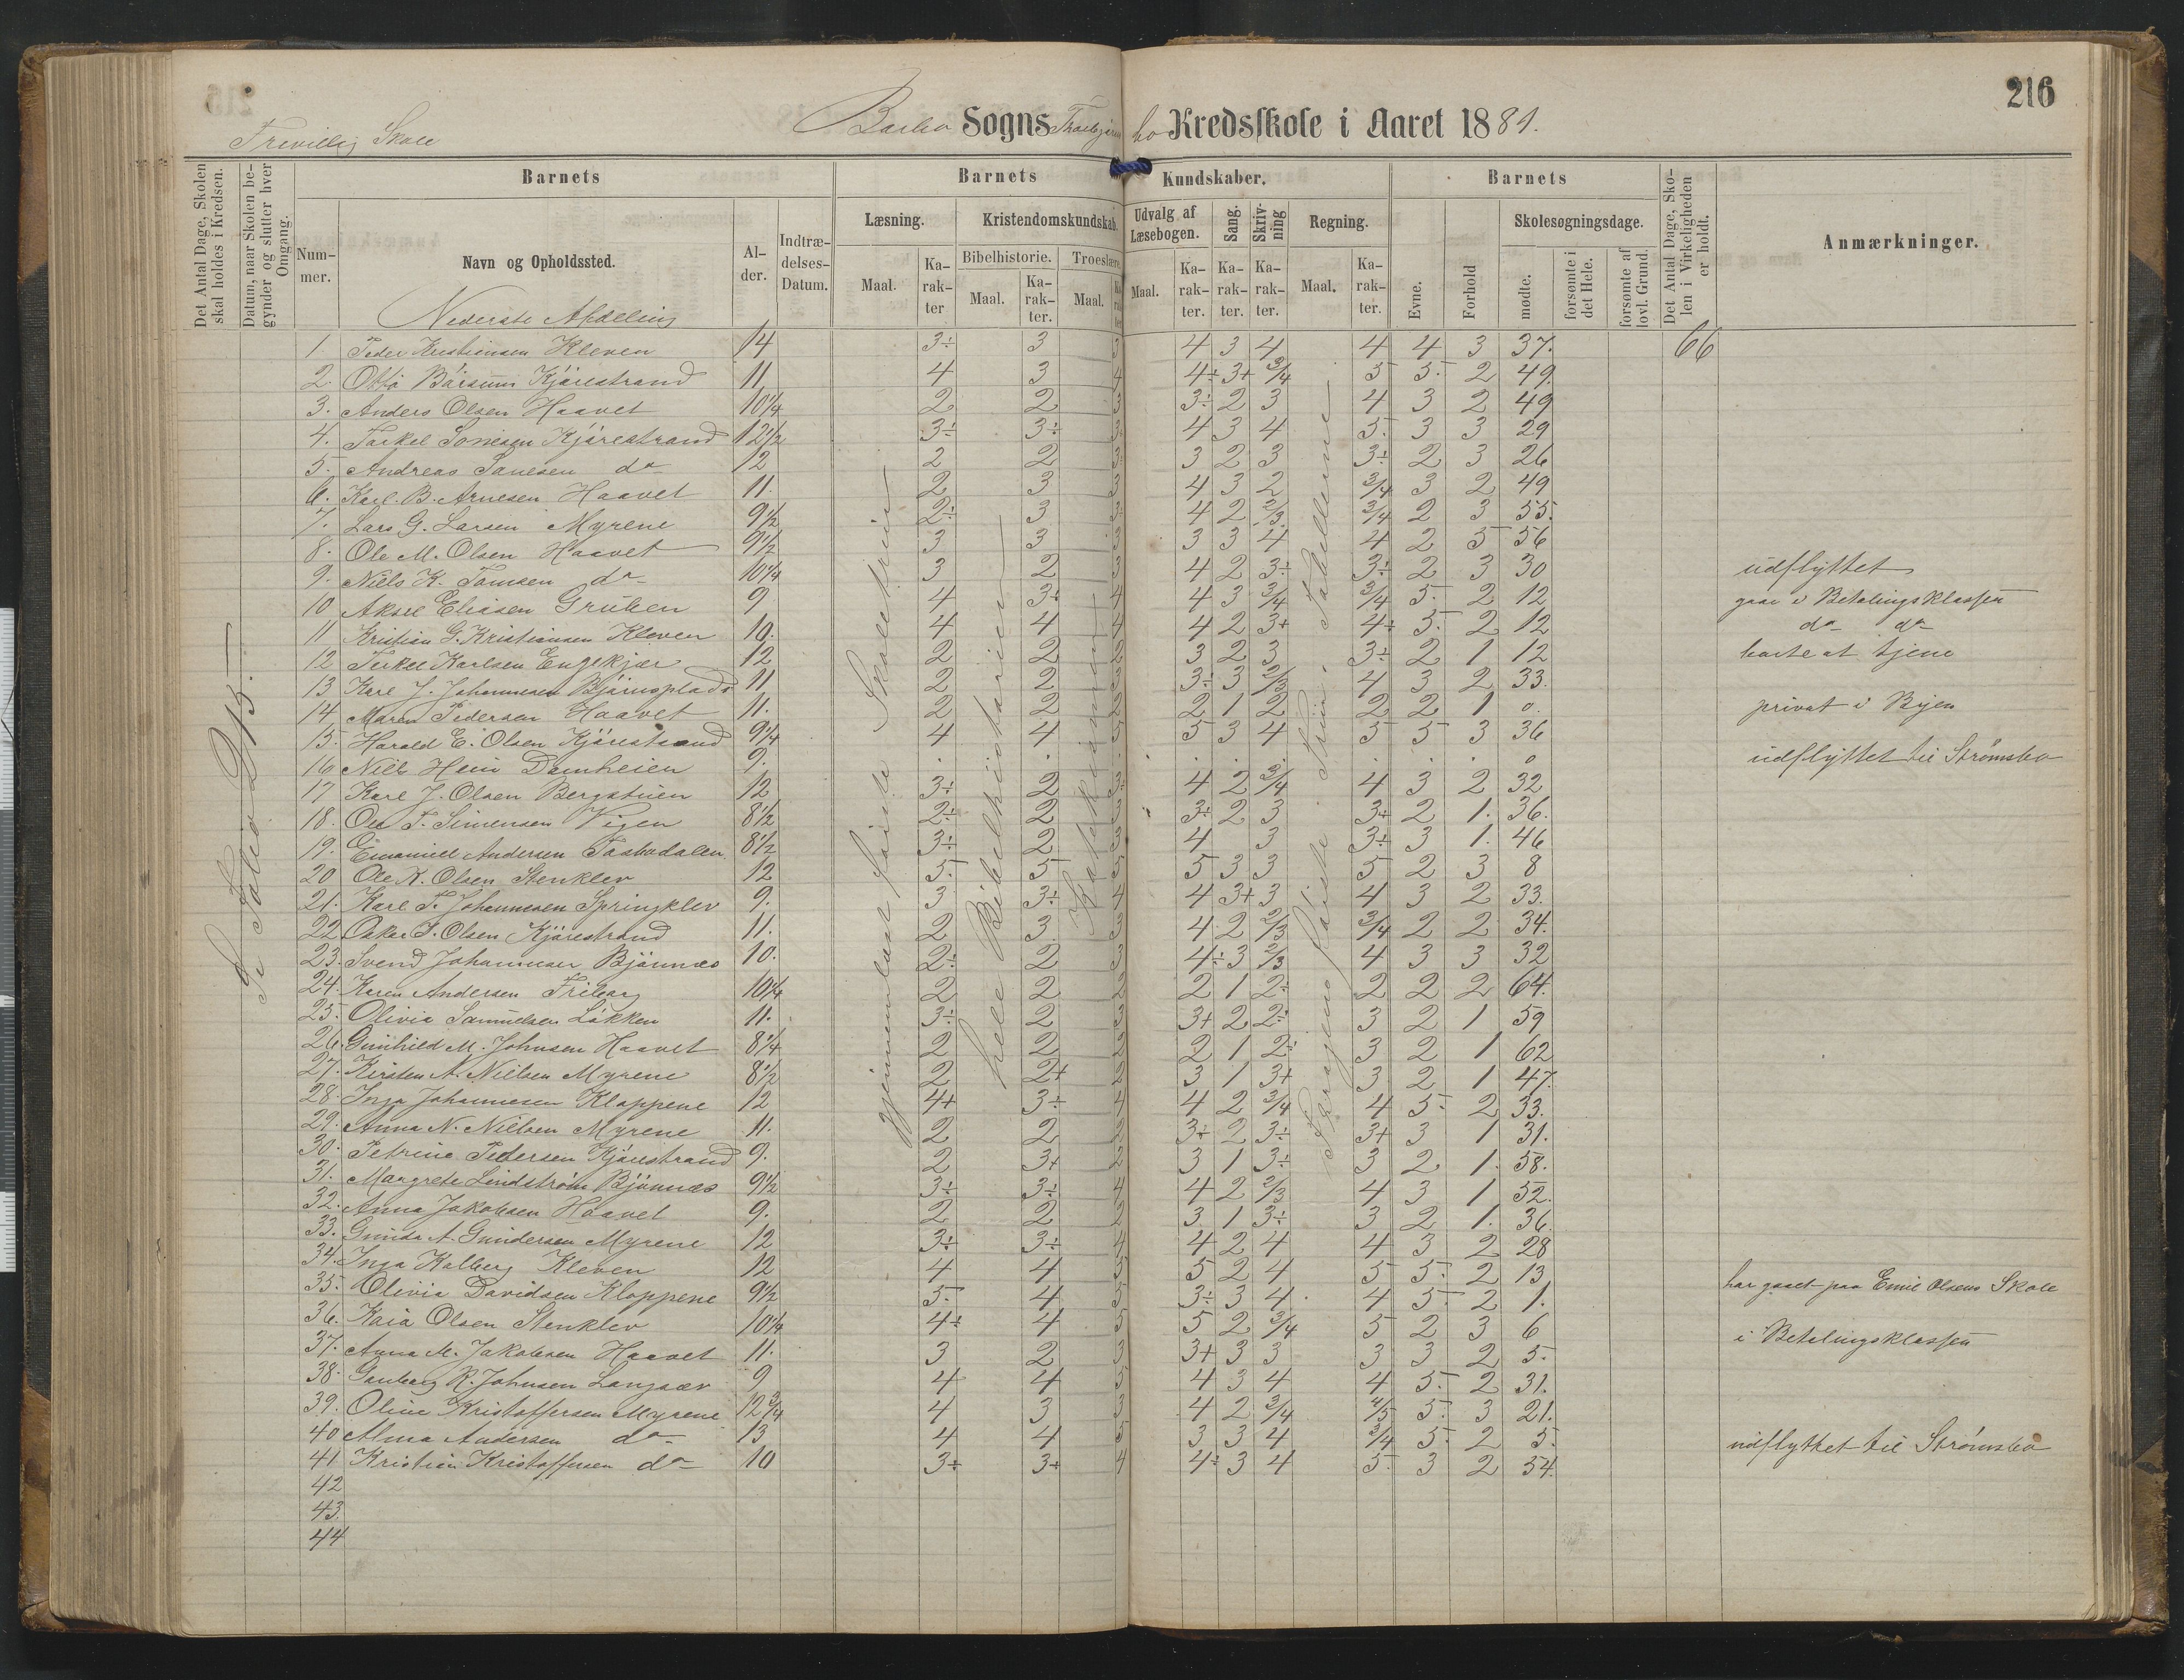 216
Barbo Sogns Kredsskole i Aaret 1881.
Frivillig Skole
Det Antal Dage, Skolen skal holdes i Kredsen.
Datum, naar Skolen begynder og slutter hver Omgang.
Barnets
Barnets Kundskaber.
Barnets
Det Antal Dage, Skolen i Virkeligheden er holdt.
Anmærkninger.
Nummer.
Navn og Opholdssted.
Alder.
Indtrædelses-Datum.
Læsning.
Kristendomskundskab.
Udvalg af Læsebogen.
Sang.
Skrivning
Regning.
Evne.
Forhold
Skolesøgningsdage.
Bibelhistorie.
Troeslære
Maal.
Karakter
Maal.
Karakter.
Maal.
Maal.
Karakter.
Karakter.
Karakter.
Maal.
Karakter.
mødte.
forsømte i det Hele.
forsømte af lovl. Grund.
Nederste Afdeling
Se Folio 215.
gjennemlæst første Skoletrin
hele Bibelhistorien
1. Peder Kristiansen Kleven 14 3÷ 3 3 4 3 4 4 4 3 37. 66
2. Otto Kjärestrand 11 4 3 4 4÷ 3+ 3/4 5 5. 2 49.
3. Anders Olsen Haavet 10 1/4 2 2 3 3÷ 2 3 4 3 2 49
4. Kjärestrand 12 1/2 3÷ 3÷ 3 4 3 4 5. 3 3 29
5. Andreas do 12 2 2 3 3 2 3 3÷ 2 3 26
6. Karl B. Arnesen Haavet 11. 2 3 3 4 3 2 3/4 3 2 49
7. Lars G. Larsen Myrene 9 1/2 2÷ 3 3 4 2 2/3 3/4 2 3 55.
8. Ole M. Olsen Haavet 9 1/2 3 3 3 3 3 4 4 2 3 56
9. Niels K. do 10 1/4 3 2 3 4 2 3÷ 3÷ 2 3 30 udflyttet
10 Aksel Eliasen Gruben 9 4 3÷ 4 4 3 3/4 3/4 5. 2 12 gaar i Betalingsklassen
11 Kristian G. Kristiansen Kleven 10. 4 4 4 4 2 3+ 4÷ 5. 2 12 do do
12 Terkel Karlsen Engekjær 12 2 2 2 3 2 3 3÷ 2 1 12 borte at tjene
13 Karl J. Johannesen 11 2 2 2 3÷ 3 2/3 4 3 2 33.
14 Maren Pedersen Haavet 11. 2 2 2 2 1 2 2 2 1 0. privat i Byen
15. Harald E. Olsen Kjärestrand 9 1/4 4 4 5 5 3 4 5 5 3 36
16 Niels Damheien 9. 0 udflyttet til Strømsbo
17 Karl J. Olsen Bergstuen 12 3÷ 2 3 4 2 3/4 4 3 2 32
18. Ole T. Simensen Vigen 8 1/2 2÷ 2 3 3÷ 2 3 3÷ 2 1. 36.
19. Emanuel Andersen 8 1/2 3÷ 2 3 4 3 3÷ 3 1. 46
20 Ole K. Olsen Stenklev 12 5. 5 5 5 3 3 5 2 3 8
21. Karl T. Johannesen Springklev 9. 3 3÷ 4 4 3+ 3 4 3 2 33.
22 Oskar T. Olsen Kjärestrand 11. 2 3 3 4 2 2/3 3/4 2 2 34.
23. Svend Johannesen Bjönnes 10. 2÷ 2 3 4÷ 3 2/3 4 3 3 32
24. Karen Andersen 10 1/4 2 2 2 2 1 2÷ 2 2 2 64.
25. Olivia Samuelsen Løkken 11. 3÷ 2 3 3+ 2 2÷ 3 2 1 59
26. Gunhild M. Johnsen Haavet 8 1/4 2 2 2 2 1 2÷ 3 2 1 62
27. Kirsten A. Nielsen Myrene 8 1/2 2 2+ 2 3 1 3+ 3 2 1 47.
28. Inga Johannesen Kloppene 12 4+ 3÷ 4 4 2 3/4 4 5. 2 33.
29. Anna N. Nielsen Myrene 11. 2 2 2 3÷ 2 3÷ 3+ 3 1 31.
30. Petrine Pedersen Kjärestrand 9. 2 3+ 2 3 1 3÷ 3 2 1. 58.
31. Margrete Lindström Bjönnes 9 1/2 3÷ 3÷ 4 4 2 2/3 4 3 1 52.
32. Anna Jakobsen Haavet 9. 2 2 2 3 1 3÷ 3 2 1. 36.
33. A. Gundersen Myrene 12 3÷ 3÷ 4 4 2 4 4 3 2 28
34. Inga Kolberg Kleven 12 4 4 5 5 2 4 5 5. 2 13
35. Olivia Davidsen Kloppene 9 1/2 5. 4 5 3÷ 3 4 4 5. 2 1. har gaaet paa Emil Olsens Skole
36. Kaia Olsen Stenklev 10 1/4 4÷ 4 5 5 2 3/4 5 2 3 6
37. Anna M. Jakobsen Haavet 11. 3 2 3 3+ 3 3 3 3 2 5. i Betalingsklassen
38. R. Johnsen Langsæv 9 4 4 5 4 3 4 4 5. 2 31.
39. Oline Kristoffersen Myrene 12 3/4 4 3 3 4 2 3/4 4/5 5. 3 21.
40 Alma Andersen do 13 4 4 5 3 3 4 3/4 5. 2 5.
41 Kristian Kristoffersen do 10 3÷ 3÷ 4 4÷ 3 4 5. 3 2 54. udflyttet til Strømsbo
42
43.
44